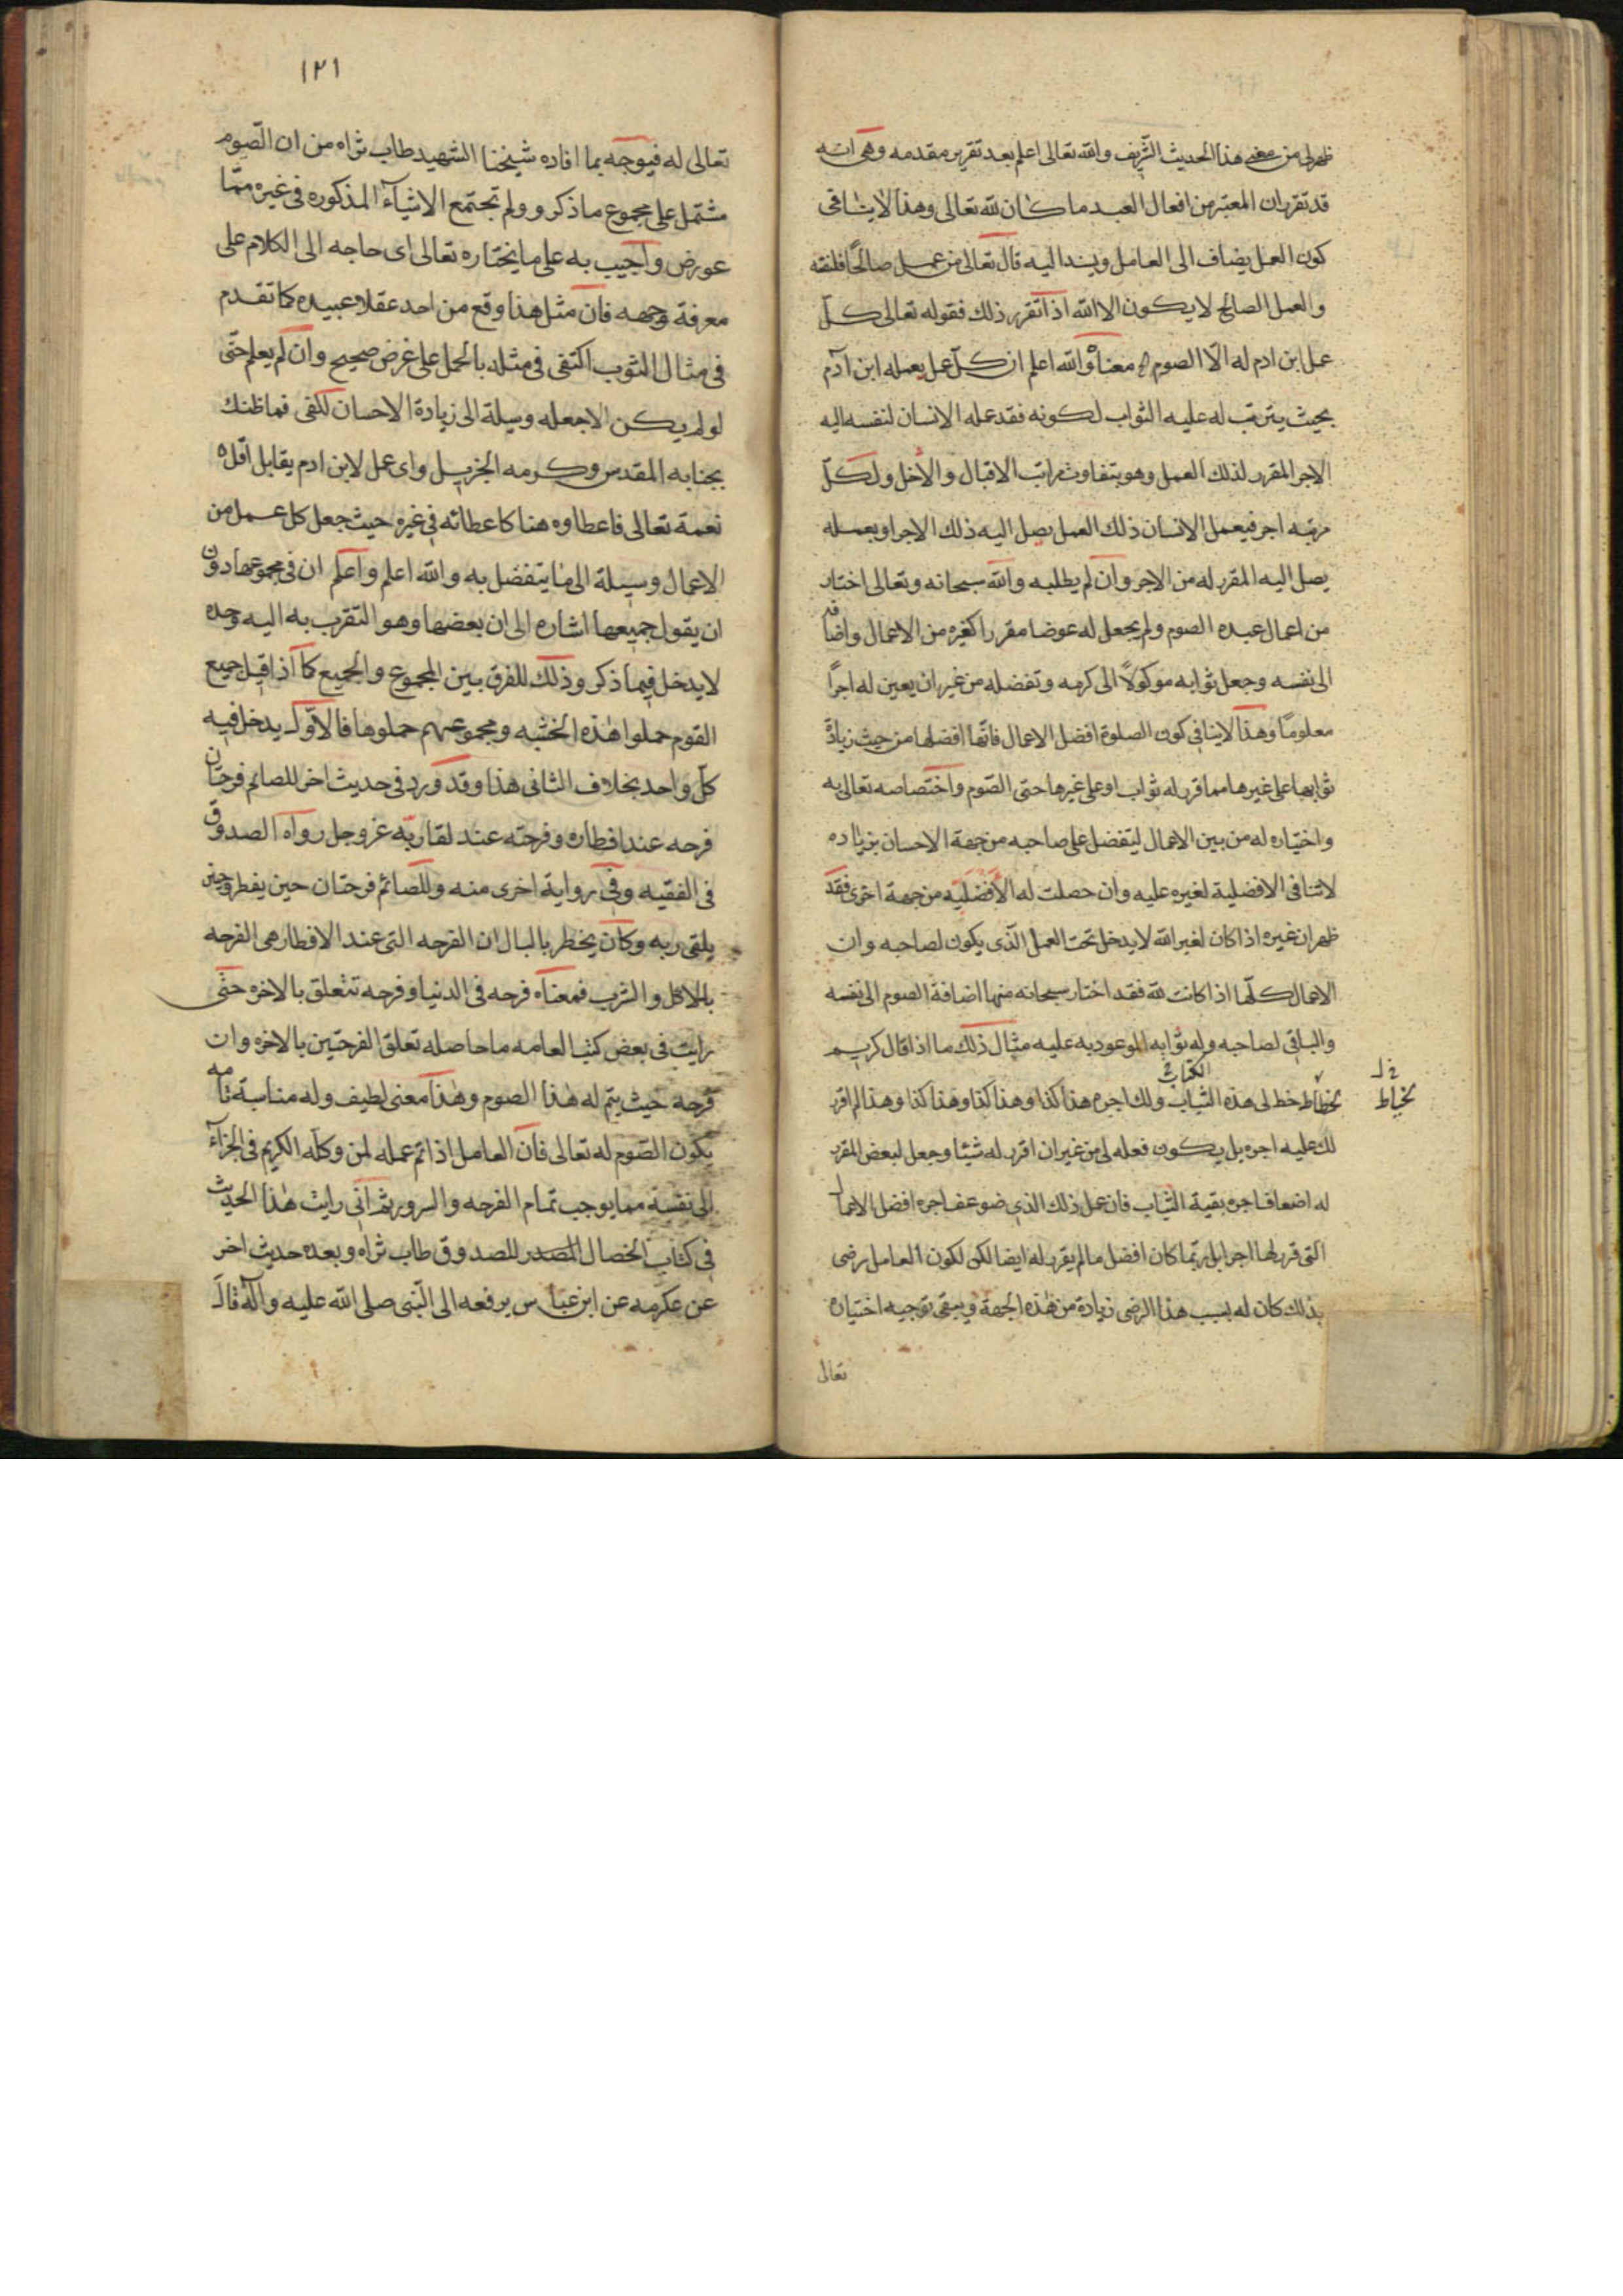 ظهر لى من معنى هذا الحديث الشريف والله تعالى اعلم بعد تقرير مقدمه وهى انه
قد تقرر ان المعتبر من افعال العبد ما كان لله تعالى وهذا لا ينافى
كون العمل يضاف الى العامل ويسند اليه قال تعالى من عمل صالحًا فلنفسه
والعمل الصالح لا يكون الا لله اذا تقرر ذلك فقوله تعالى كلّ
عمل ابن ادم له الّا الصوم معناه والله اعلم ان كلّ عمل يعمله ابن آدم
بحيث يترتب له عليه الثواب لكونه فقد عمله الانسان لنفسه اليه
الاجر المقرر لذلك العمل وهو بتفاوت مراتب الاقبال والأخل ولكلّ
مرتبه اجر فيعمل الانسان ذلك العمل يصل اليه ذلك الاجر او بعمله
يصل اليه المقرر له من الاجر وان لم يطلبه والله سبحانه وتعالى اختار
من اعمال عبده الصوم ولم يجعل له عوضا مقررا كغيره من الاعمال واضافه
الى نفسه وجعل ثوابه موكولاً الى كرمه وتفضله من غير ان يعين له اجرًا
معلومًا وهذا لا ينافى كون الصلوة افضل الاعمال فانّها افضلها من حيث زيادة
ثوابها على غيرها مما قرر له ثواب او على غيرها حتى الصّوم واختصاصه تعالى به
واختياره له من بين الاعمال ليتفضل على صاحبه من جهة الاحسان بزياده
لا تنافى الافضلية لغيره عليه وان حصلت له الأفضليّه من جهة اخرى فقد
ظهر ان غيره اذا كان لغير الله لا يدخل تحت العمل الّذى يكون لصاحبه وان
الاعمال كلّها اذا كانت لله فقد اختار سبحانه منها اضافة الصوم الى نفسه
والباقى لصاحبه وله ثوابه الموعود به عليه مثال ذلك ما اذا قال كريم
لخياط خط لى هذه الثياب ولك اجره هذا كذا وهذا كذا وهذا كذا وهذا لم اقرر
الكتاب
خ ل
لخياط
لك عليه اجره بل يكون فعله لى من غير ان اقرر له شيئا وجعل لبعض المقرر
له اضعاف اجره بقية الثياب فان عمل ذلك الذى ضوعف اجره افضل الاعمال
التى قرر لها اجرا بل ربّما كان افضل ما لم يقرر له ايضا لكن لكون العامل رضى
بذلك كان له بسبب هذا الرضى زيادة من هذه الجهة ويبقى توجيه اختياره
تعالى
١٢١
تعالى له فيوجه بما افاده شيخنا الشهيد طاب ثراه من ان الصّوم
مشتمل على مجموع ما ذكر و ولم تجتمع الاشيآء المذكوره فى غيره ممّا
عورض واجيب به على ما يختاره تعالى اى حاجه الى الكلام على
معرفة وجهه فان مثل هذا وقع من احد عقلاء عبيده كما تقدم
فى مثال الثوب اكتفى فى مثله بالحمل على غرض صحيح وان لم يعلم حتّى
لو لم يكن الا جعله وسيلة الى زيادة الاحسان لكفى فما ظنك
بجنابه المقدس وكرمه الجزيل واى عمل لابن ادم يقابل اقلّ
نعمة تعالى فاعطاوه هنا كاعطائه فى غيره حيث جعل كل عمل من
الاعمال وسيلة الى ما يتفضل به والله اعلم واعلم ان فى مجموعها دون
ان يقول جميعها اشاره الى ان بعضها وهو التقرب به اليه وحده
لا يدخل فيما ذكر وذلك للفرق بين المجموع والجميع كما اذا قيل جميع
القوم حملوا هذه الخشبه ومجموعهم حملوها فالاوّل يدخل فيه
كلّ واحد بخلاف الثانى هذا وقد ورد فى حديث اخر للصائم فرحتان
فرحه عند افطاره وفرحته عند لقاء ربّه عز وجل رواه الصدوق
فى الفقيه وفى رواية اخرى منه وللصائم فرحتان حين يفطر وحين
يلقى ربه وكان يخطر بالبال ان الفرحه التى عند الافطار هى الفرحه
بالاكل والشرب فمعناه فرحه فى الدنيا وفرحه تتعلق بالاخره حتّى
رايت فى بعض كتب العامه ما حاصله تعلق الفرحتين بالاخره وان
فرحه حيث يتم له هذا الصوم وهذا معنى لطيف وله مناسبة تامه
بكون الصّوم له تعالى فان العامل اذا تم عمله لمن وكله الكريم فى الجزآء
الى نفسه مما يوجب تمام الفرحه والسرور ثم انى رايت هذا الحديث
فى كتاب الخصال المصدر للصدوق طاب ثراه وبعده حديث اخر
عن عكرمه عن ابن عباس يرفعه الى النّبى صلى الله عليه وآله قال